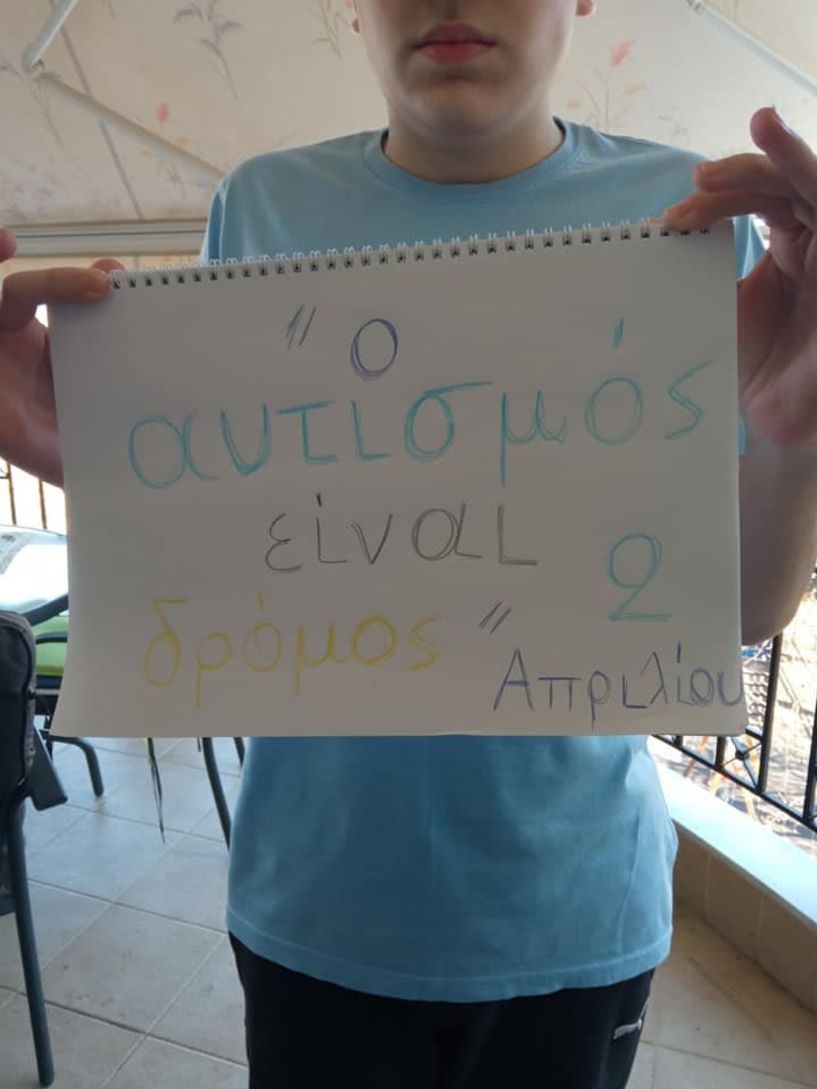 "Ο
αυτισμός
είναι
δρόμος"
2
Απριλίου